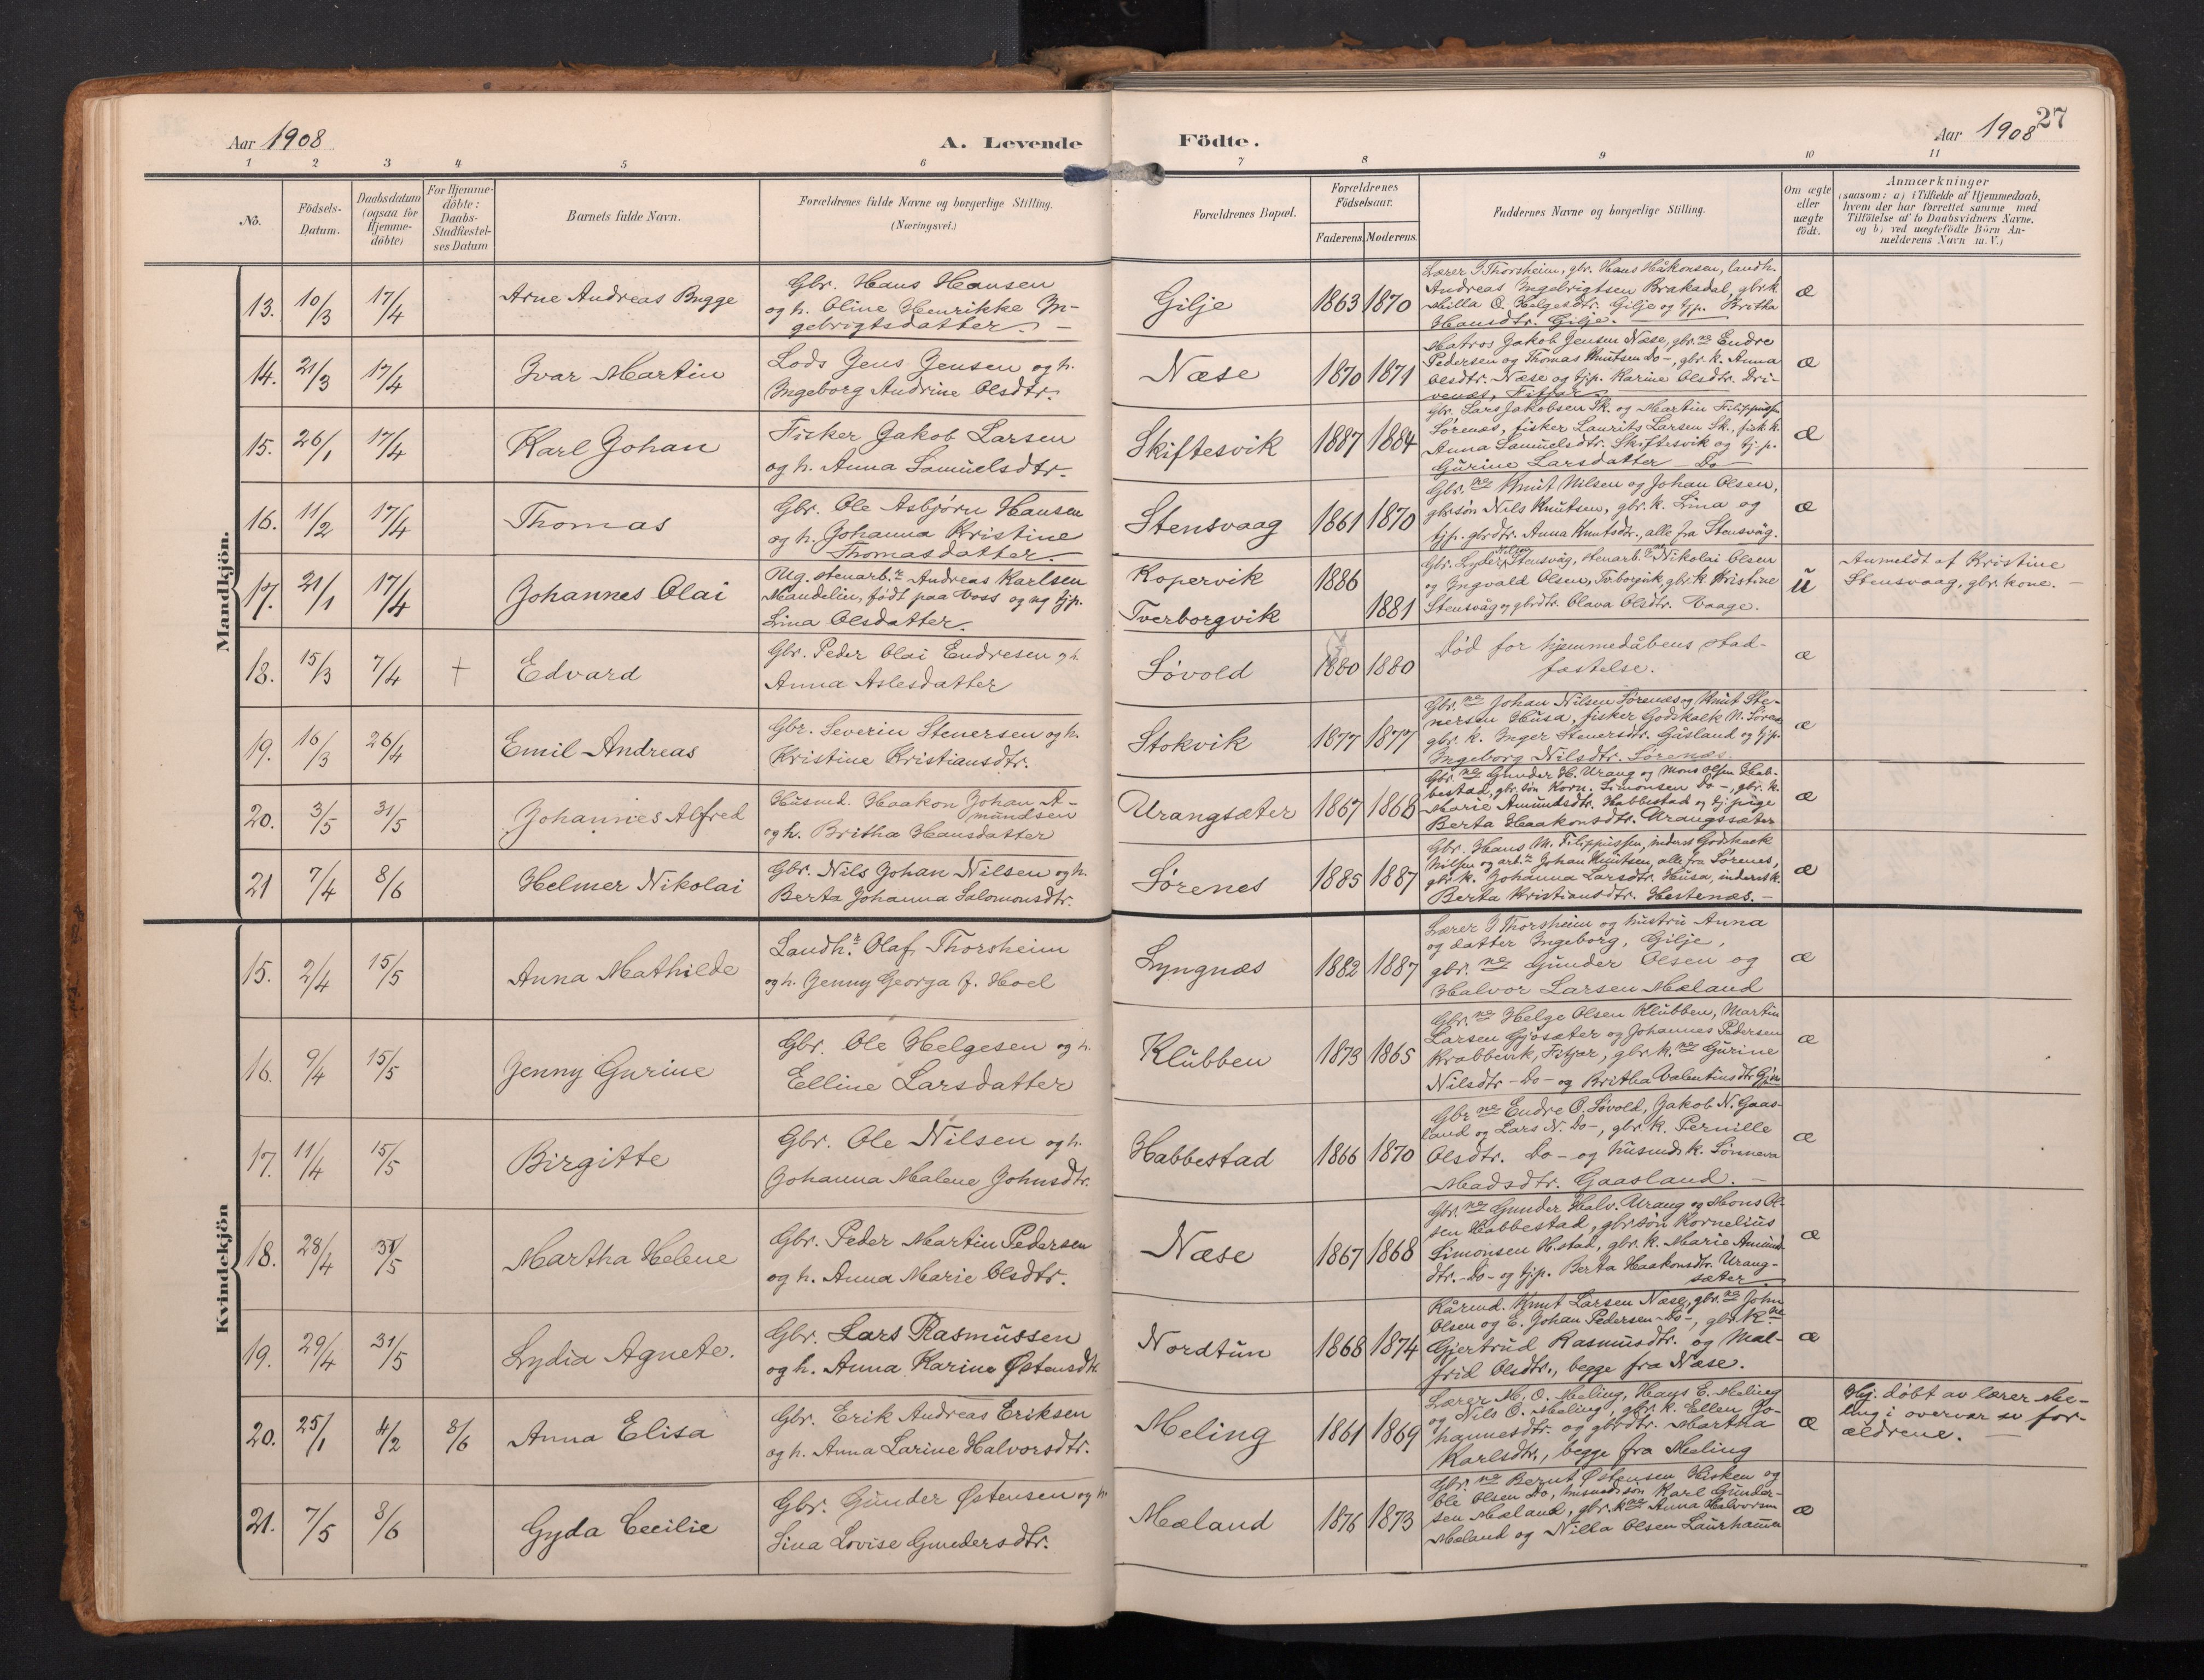 27
Aar 1908
A. Levende
Födte.
Aar 1908
1 2 3 4 5 6 7 8 9 10 11
No.
Födsels-
Datum.
Daabsdatum
(ogsaa for
Hjemme-
döbte)
For Hjemme-
döbte:
Daabs-
Stadfæstel-
ses Datum
Barnets fulde Navn.
Forældrenes fulde Navne og borgerlige Stilling.
(Næringsvei.)
Forældrenes Bopæl.
Forældrenes
Födselsaar.
Faderens. Moderens.
Faddernes Navne og borgerlige Stilling.
Om ægte
eller
uægte
födt.
Anmærkninger
(saasom: a) i Tilfælde af Hjemmedaab,
hvem der har forrettet samme med
Tilföielse af to Daabsvidners Navne.
og b) ved uægtefödte Börn An-
melderens Navn m. V.)
Mandkjön.
13. 10/3 17/4 Arne Andreas Bugge
Gbr. Hans Hansen
og h. Oline Henrikke In-
gebrigtsdatter. —
Gilje 1863 1870
Lærer I Thorsheim, gbr. Hans Håkonsen, landh.
Andreas Ingebrigtsen Brakedal, gbr.k
Milla O. Helgesdtr. Gilje og tjp. Britha
Hansdtr. Gilje.
æ
14. 21/3 17/4 Ivar Martin
Lods Jens Jensen og h.
Ingeborg Andrine Olsdtr.
Næse 1870 1871
Matros Jakob Jensen Næse, gbr.ne Endre
Pedersen og Thomas Knutsen Do-, gbr. k. Anna
Olsdtr. Næse og tjp. Karine Olsdtr. Dri-
venes, Fitjar.
æ
15. 26/1 17/4 Karl Johan
Fisker Jakob Larsen
og h. Anna Samuelsdtr.
Skiftesvik 1887 1884
Gbr. Lars Jakobsen Sk. og Martin Filippussen
Sørenæs, fisker Laurits Larsen Sk., fisk.k.
Anna Samuelsdtr. Skiftesvik og tj.p.
Gurine Larsdatter — Do —
æ
16. 11/2 17/4 Thomas
Gbr. Ole Asbjørn Hansen
og h. Johanna Kristine
Thomasdatter.
Stensvaag 1861 1870
Gbr.ne Knut Nilsen og Johan Olsen,
gbrsøn Nils Knutsen, gbr. k. Lina og
tjp. gbrdtr. Anna Knutsdtr., alle fra Stensvåg.
æ
17. 21/1 17/4 Johannes Olai
Ug. stenarb.r Andreas Karlsen
Mandelin, født paa Voss og ug tjp.
Lina Olsdatter.
Kopervik 1886
Tverborgvik 1881
Stensvåg, stenarb. Nikolai Olsen
og Ingvald Olsen, Tverborgvik, gbr.k Kristine
Stensvåg og gbrdtr. Olava Olsdtr. Vaage.
u
Anmeldt af Kristine
Stensvaag, gbr. kone. —
18. 15/3 7/4 † Edvard
Gbr. Peder Olai Endresen og h.
Anna Aslesdatter
Løvold 1880 1880
Død før hjemmedåbens stad-
fæstelse.
æ
19. 16/3 26/4 Emil Andreas
Gbr. Severin Stenersen og h.
Kristine Kristiansdtr.
Stokvik 1877 1877
Gbr.ne Johan Nilsen Sørenæs og Knut Ste-
nersen Husa, fisker Godskalk N. Søren.
gbr. k. Inger Stenersdtr. Gåsland og tjp.
Ingeborg Nilsdtr. Sørenæs.
æ
20. 3/5 31/5 Johannes Alfred
Husmd. Haakon Johan A-
mundsen
og h. Britha Hansdatter
Urangsæter 1867 1868
Gbr.ne Gunder H. Urang og Mons Olsen Hab-
bestad, gbr. søn Korn. Simonsen Do-, gbr. k.
Marie Amundsdtr. Habbestad og tj.pige
Berta Haakonsdtr. Urangssæter
æ
21 7/4 8/6 Helmer Nikolai
Gbr. Nils Johan Nilsen og h.
Berta Johanna Salomonsdtr.
Sørenes 1885 1887
Gbr. Hans M. Filippussen, inderst Godskalk
Nilsen og arb.r Johan Knutsen, alle fra Sørenes,
gbr. k. Johanna Larsdtr. Husa, inderst k.
Berta Kristiansdtr. Hestenæs. —
æ
Kvindekjön
15. 2/4 15/5 Anna Mathilde
Landh.r Olaf Thorsheim
og h. Jenny Georga f. Hoel
Lyngnæs 1882 1887
Lærer I Thorsheim og hustru Anna
og datter Ingeborg, Gilje,
gbr. ne Gunder Olsen og
Halvor Larsen Mæland
æ
16. 9/4 15/5 Jenny Gurine
Gbr. Ole Helgesen og h.
Elline Larsdatter
Klubben 1873 1865
Gbr. ne Helge Olsen Klubben, Martin
Larsen Gjøsæter og Johannes Pedersen
Krabbevik, Fitjar, gbr. k.ne Gurine
Nilsdtr — Do — og Britha Valentinsdtr
æ
17. 11/4 15/5 Birgitte
Gbr. Ole Nilsen og h.
Johanna Malene Johnsdtr.
Habbestad 1866 1870
Gbr ne Endre O. Løvold, Jakob N. Gaas-
land og Lars N. Do-, gbr. k. Pernille
Olsdtr. Do — og husmds k. Sønneva
Madsdtr. Gaasland. —
æ
18. 28/4 31/5 Martha Helene
Gbr. Peder Martin Pedersen
og h. Anna Marie Olsdtr.
Næse 1867 1868
Gbr. ne Gunder Halv. Urang og Mons Ol-
sen Habbestad, gbrsøn Kornelius
Simonsen H.stad, gbr. k. Marie Amund-
dtr. -Do- og tjp. Berta Haakonsdtr. Urang-
sæter
æ
19. 29/4 31/5 Lydia Agnete.
Gbr. Lars Rasmussen
og h. Anna Karine Østensdtr
Nordtun 1868 1874
Kårmd. Knut Larsen Næse, gbr.ne John
Olsen og E. Johan Pedersen -Do-, gbr. k.ne
Gjertrud Rasmusdtr. og Mal-
frid Olsdtr., begge fra Næse.
æ
20. 25/1 4/2 8/6 Anna Elisa
Gbr. Erik Andreas Eriksen
og h. Anna Larine Halvorsdtr.
Meling 1861 1869
Lærer M. O. Meling, Hans E. Meling
og Nils O. Meling, gbr. k. Ellen Jo-
hannesdtr. og gbrdtr. Martha
Karlsdtr., begge fra Meling
æ
Hj. døbt av lærer Me-
ling i overvær av for-
ældrene. —
21. 7/5 8/6 Gyda Cecilie
Gbr. Gunder Østensen og h
Sina Lovise Gundersdtr.
Mæland 1876 1873
Gbr. ne Bernt Østensen Hisken og
Ole Olsen Do, husmdssøn Karl Gunder-
sen Mæland, gbr. k.ne Anna Halvorsen
Mæland og Nilla Olsen Laurhammer
æ